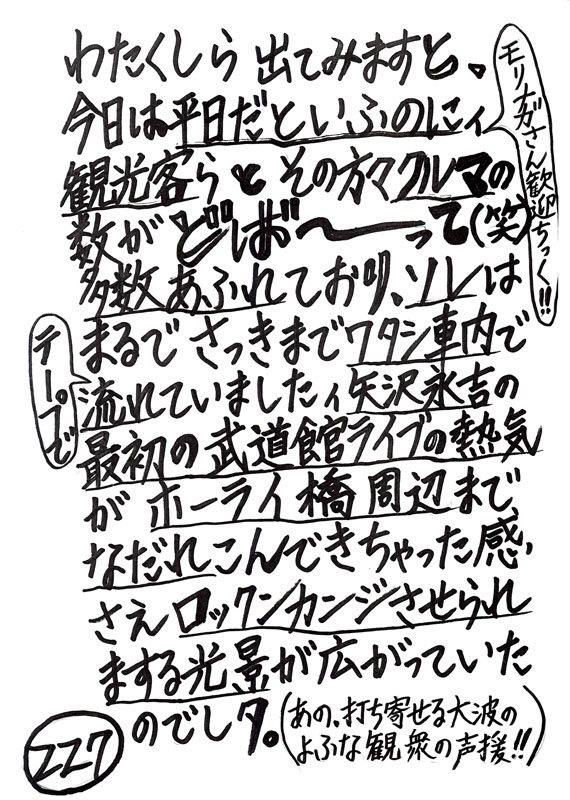 わたくしら 出てみますと、
今日は平日だといふのにィ
観光客らと その方々クルマの
数が どば〜〜って(笑)
多数あふれており、ソレは
まるで さっきまでワタシ車内で
流れていましたィ矢沢永吉の
最初の武道館ライブの熱気
が ホーライ橋周辺まで
なだれこんできちゃった感、
さえ ロックンカンジさせられ
まする光景が広がっていた
のでしタ。
(あの、打ち寄せる大波の
よふな観衆の声援!!)
モリナガさん歓迎ちっく!!
テープで
227